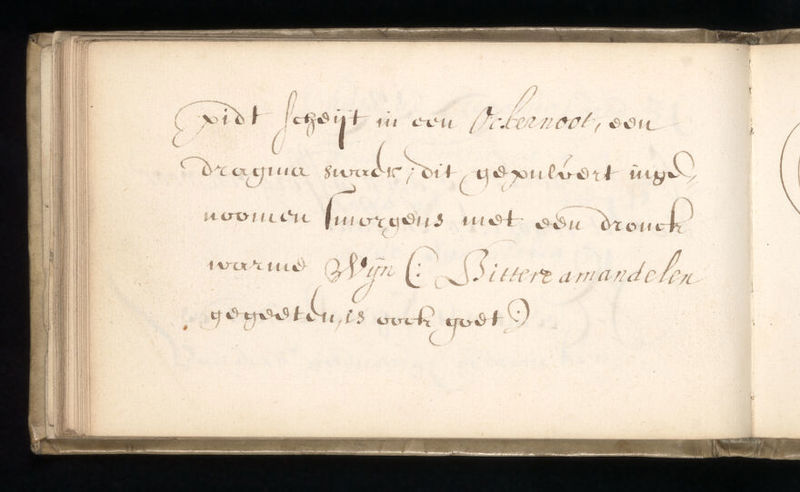 pidt scheijt in een Ockernoot, een
dragma swack, dit gepulvert inge¬
noomen smorgens met een dronck
warme Wijn (: Bittere amandelen
gegeeten, is oock goet :)